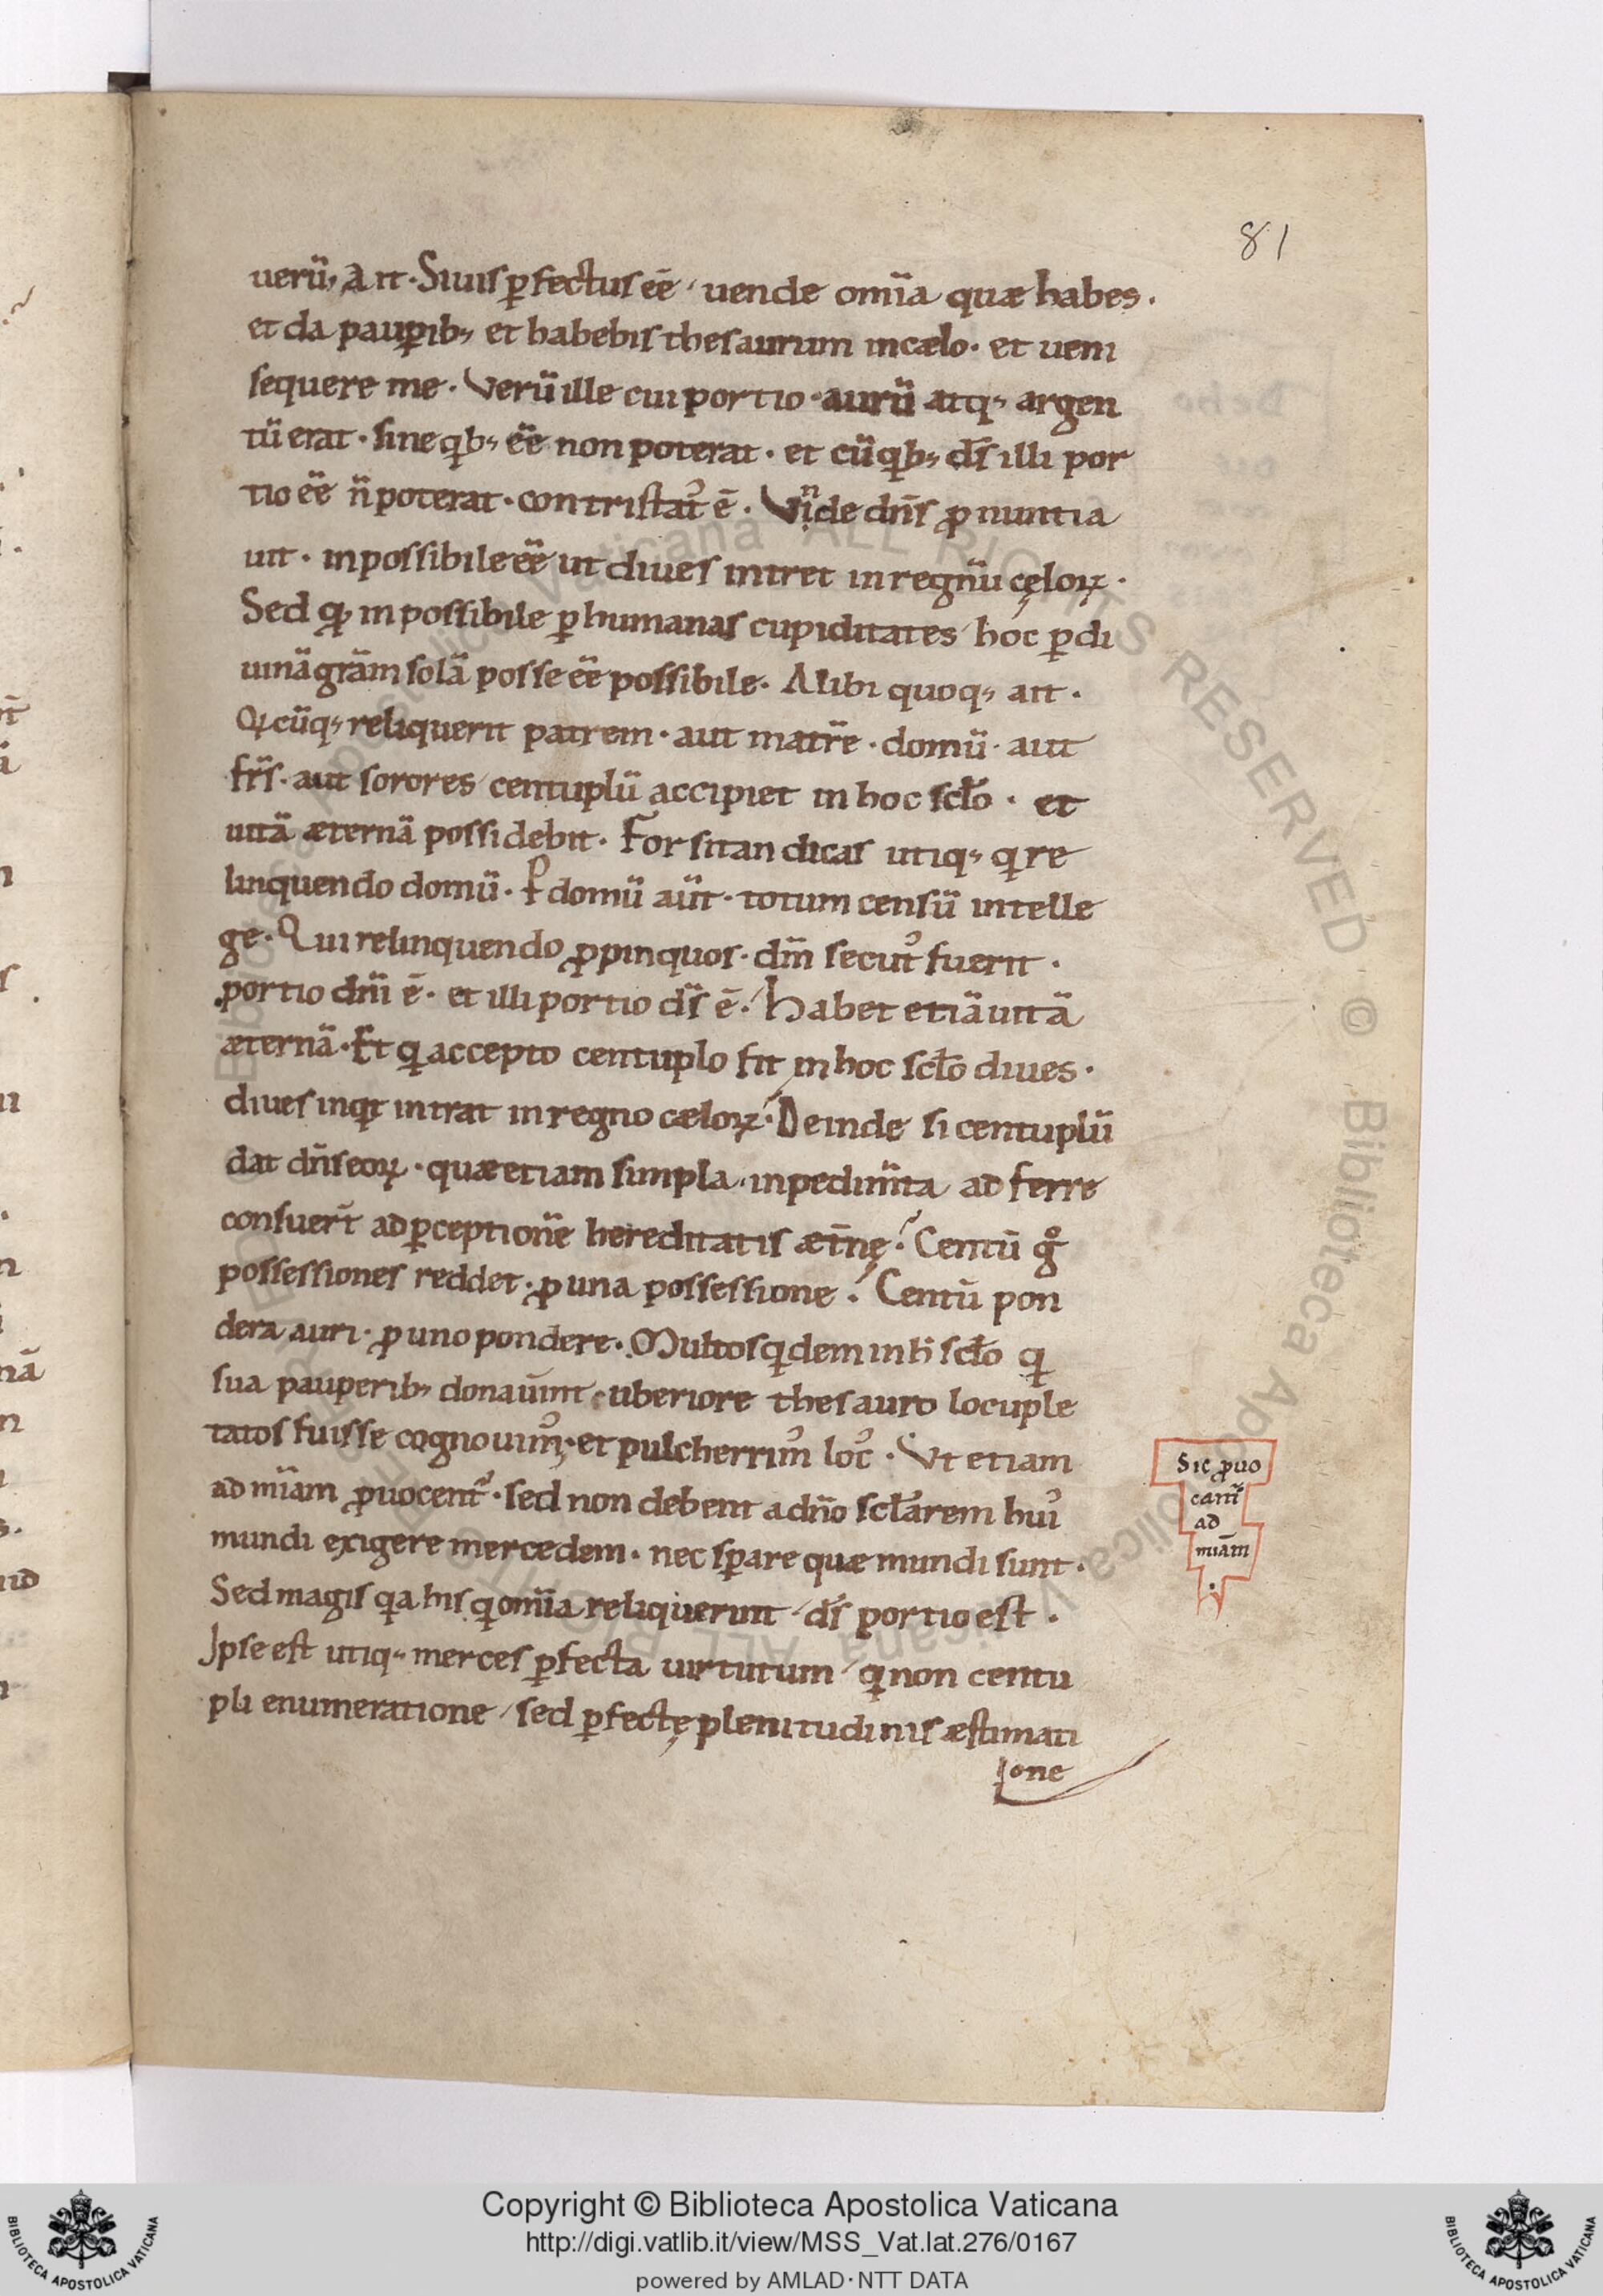 81
uerū, Ait. Siuis ꝑfectus eē, uende om̄ia quæ habes.
et da pauꝑib; et habebis thesaurum incælo. et ueni
sequere me. Verū ille cui portio aurū atq; argen
tū erat. sine qͥb; eē̄ non poterat. et cū qͥb; d̄s illi por
tio eē n̄ poterat. contristatꝰ ē. Vnde dn̄s ꝓnuntia
uit. inpossibile eē ut diues intret in regnū cęloꝝ.
Sed qđ inpossibile ꝑ humanas cupiditates hoc ꝑ di
uinā grām solā posse eē possibile. Alibi quoq; ait.
Qͥcūq; reliquerit patrem. aut matrē. domū. aut
fr̄s. aut sorores centuplū accipiet in hoc sclo. et
uitā æternā possidebit. Forsitan dicas utiq; qͥ re
linquendo domū. P domū aūt. totum censū intelle
ge. Qui relinquendo ꝓpinquos. dn̄m secutꝰ fuerit.
portio dn̄i ē. et illi portio d̄s ē. Habet etiā uitā
æternā. Et qͥ accepto centuplo fit in hoc scło diues.
diues inqͥt intrat in regno cæloꝝ. Deinde si centuplū
dat dn̄s eoꝝ. quæ etiam simpla inpedim̄ta adferre
consuer̄t ad ꝑceptionē hereditatis æt̄nę? Centū gͦ
possessiones reddet. ꝓ una possessione? Centū pon
dera auri. ꝓ uno pondere. Multos qͥdem in h̄ scło qͥ
sua pauperib; donauer̄t uberiore thesauro locuple
tatos fuisse cognouimꝰ; et pulcherrimꝰ locꝰ. Vt etiam
ad mīam ꝓuocent̄. sed non debent a dn̄o scłarem huiꝰ
mundi exigere mercedem. nec sꝑare quæ mundi sunt.
Sed magis qͥa his qͥ om̄ia reliquerunt d̄s portio est.
Ipse est utiq; merces ꝑfecta uirtutum qͥ non centu
pli enumeratione, sed ꝑfectę plenitudinis æstimati
one
Sic ꝓuo
cant̄
ad
mīam
Copyright © Biblioteca Apostolica Vaticana
http://digi.vatlib.it/view/MSS_Vat.lat.276/0167
powered by AMLAD·NTT DATA
BIBLIOTECA APOSTOLICA VATICANA
BIBLIOTECA APOSTOLICA VATICANA